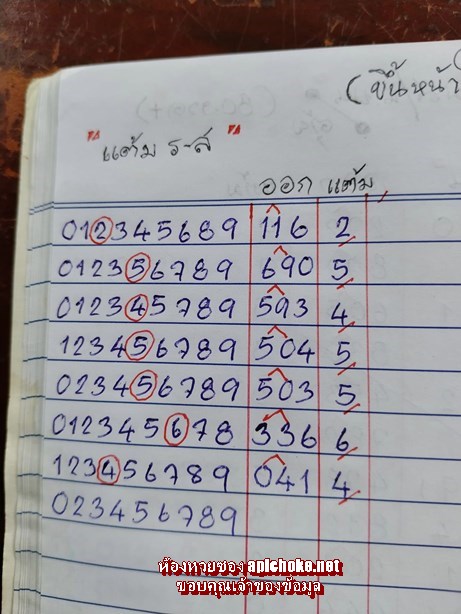 (ขึ้นหน้า
"แต้ม ร-ส"
ออก แต้ม
012345689 116 2
012356789 690 5
012345789 593 4
123456789 504 5
023456789 503 5
012345678 336 6
123456789 041 4
023456789
ห้องหวยซอง apichoke.net
ขอบคุณเจ้าของข้อมูล